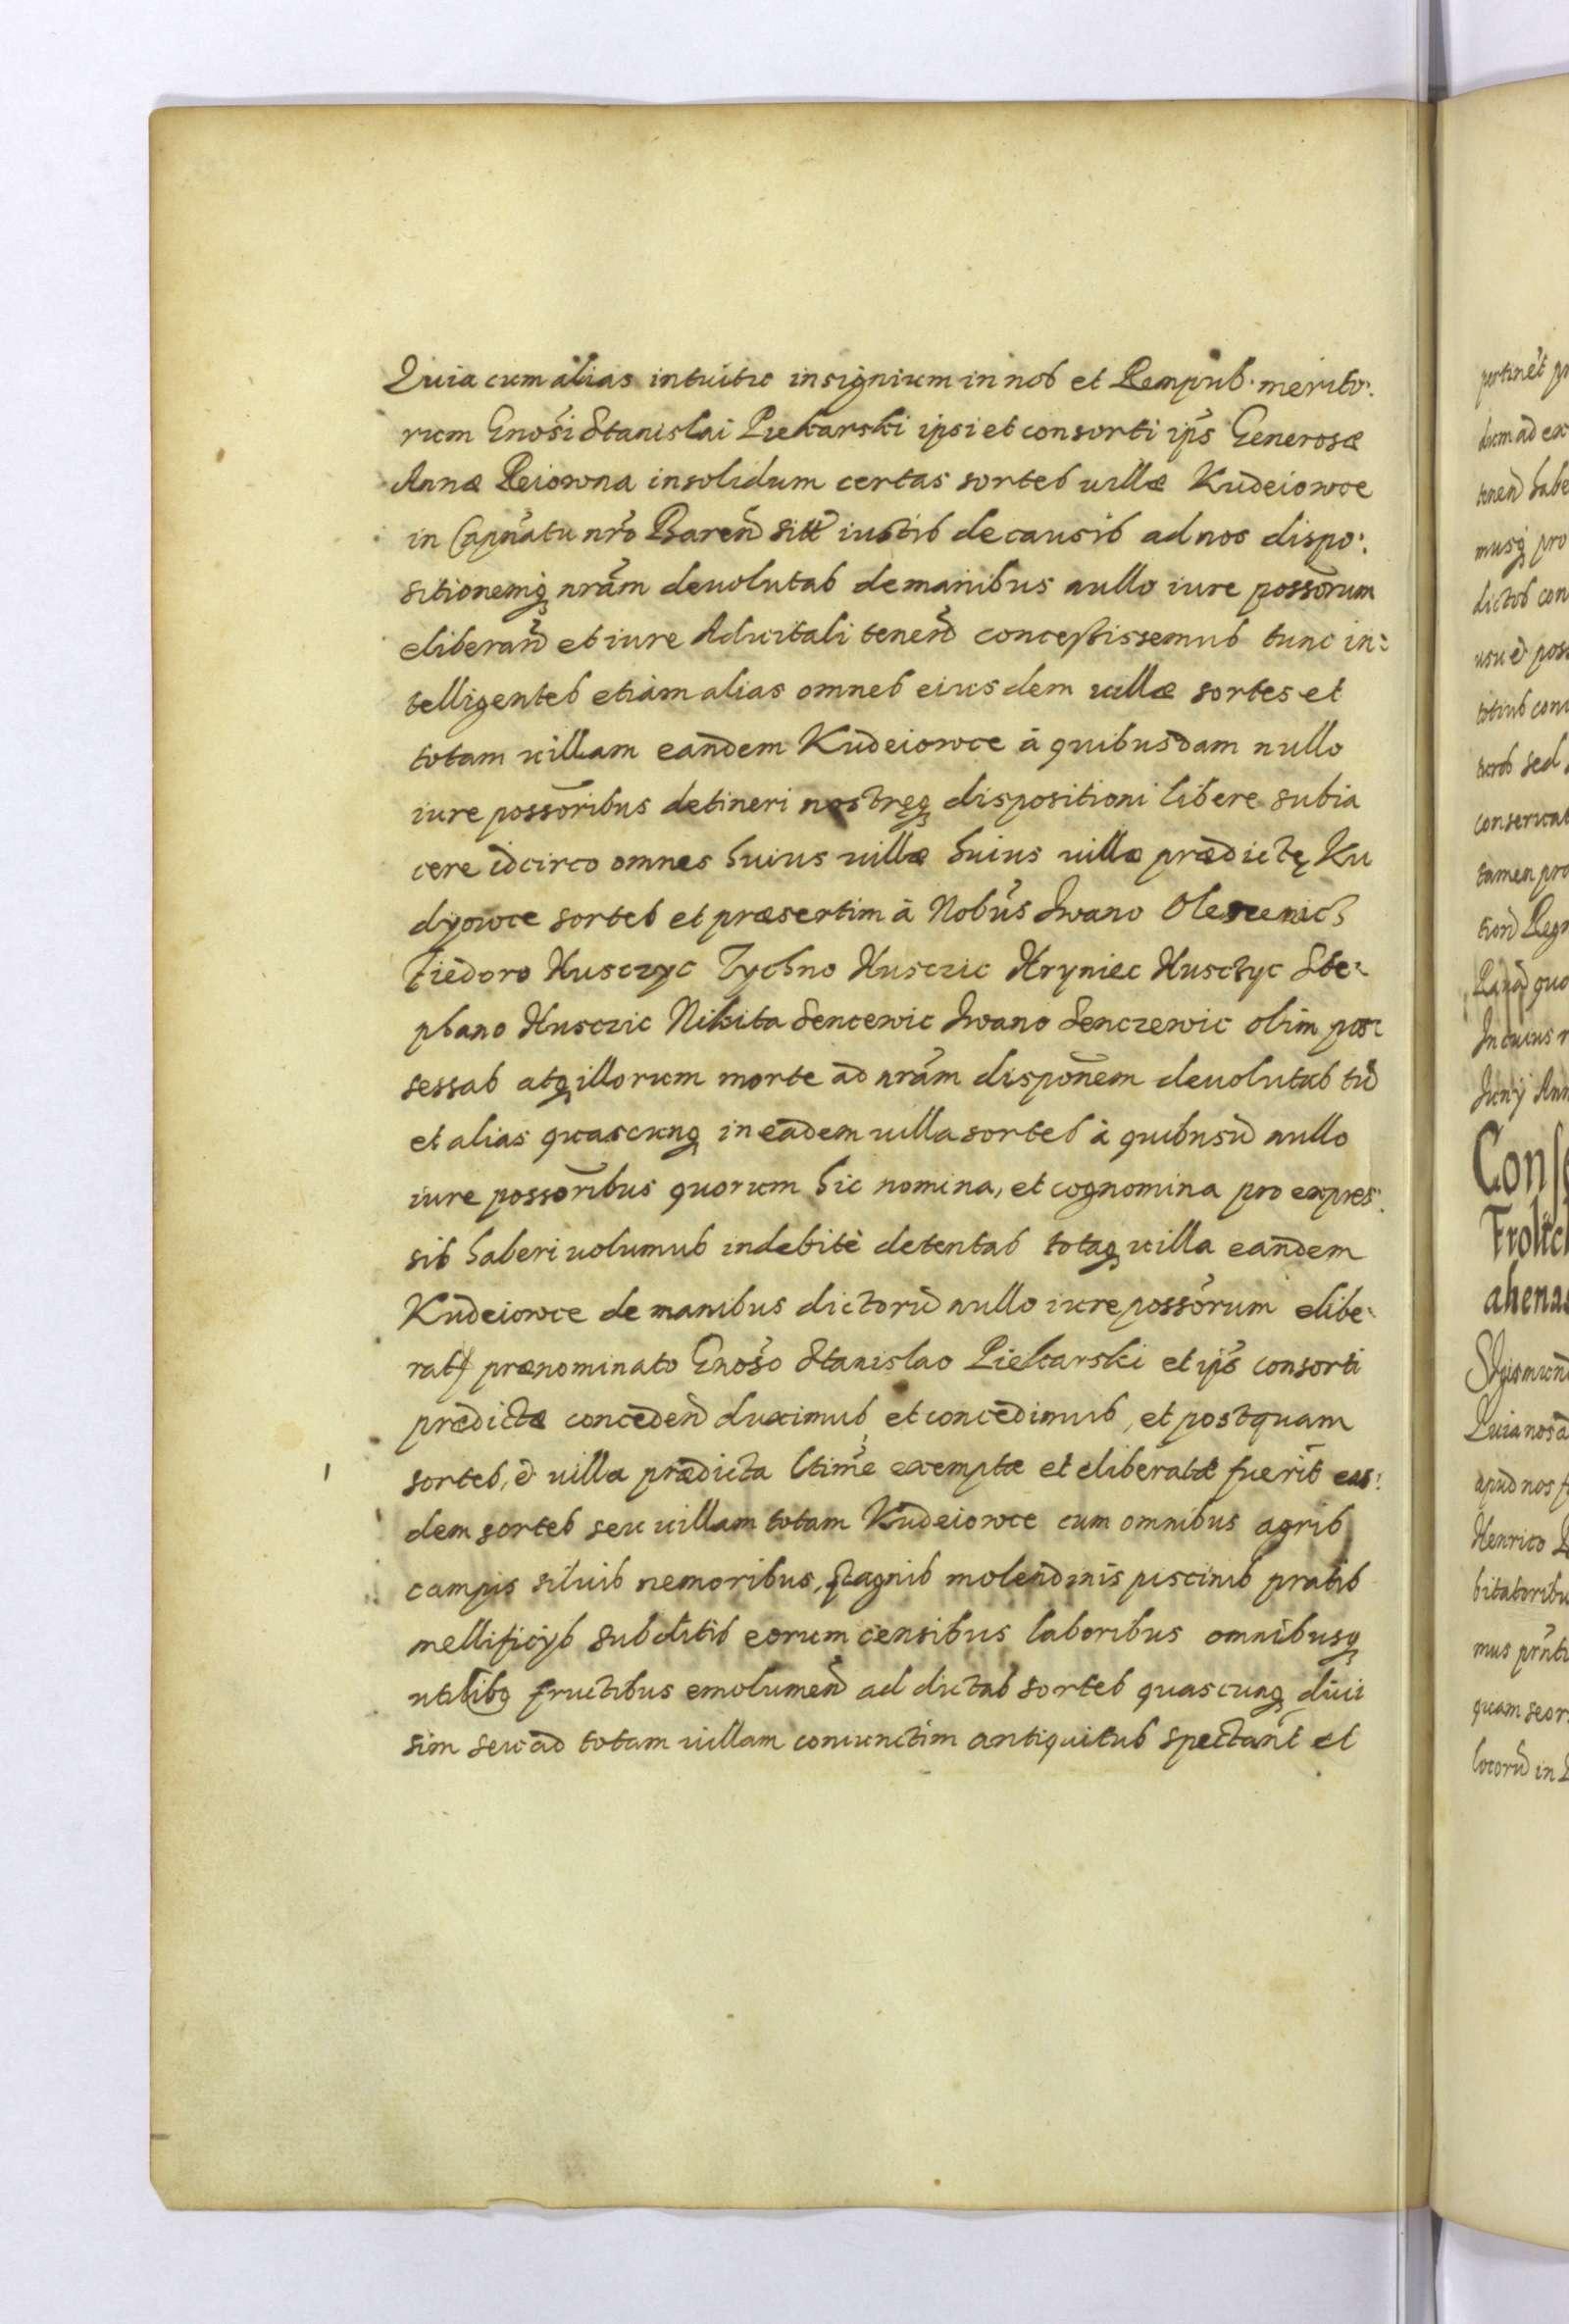 Quia cum alias intuitu insignium in nos et Rempub. merito:
rum Gnōsi Stanislai Piekarski ipsi et consorti ips̄ Generosæ
Annæ Reiowna insolidum certas sortes uillæ Kudeiowce
in Capnātu nrō Baren̄ sitt̄ iustis de causis ad nos dispo:
sitionemq̨ nrām deuolutas de manibus nullo iure possōrum
eliberan̄d et iure Aduitali tenen̄d concessissemus tunc in:
telligentes etiam alias omnes eiusdem uillæ sortes et
totam uillam eandem Kudeiowce à quibusdam nullo
iure possōribus detineri nostręq̨ dispositioni libere subia
cere idcirco omnes huius uillæ huius uillæ prædictę Ku
dyowce sortes et præsertim à Nobūs Iwano
Fiedoro Husczyc Tychno Husczic Hryniec Husczyc Ste:
phano Husczic Nikita Sencewic Iwano Senczewic olim pos:
sessas atq̨ illorum morte ad nrām disponēm deuolutas tū
et alias quascunq̨ in eadem uilla sortes à quibusd̄ nullo
iure possōribus quorum hic nomina, et cognomina pro expres:
sis haberi uolumus indebitè detentas totaq̨ uilla eandem
Kudeiowce de manibus dictorū nullo iure possōrum elibe:
rat prænominato Gnōso Stanislao Piekarski et ips̄ consorti
prædictæ conceden̄d duximus, et concedimus, et postquam
sortes, è uilla prædicta ltimē exemptæ et eliberatæ fuerīt eas:
dem sortes seu uillam totam Kudeiowce cum omnibus agris
campis siluis nemoribus, stagnis molendinis piscinis pratis
mellificijs subditis eorum censibus laboribus omnibusq̨
utilibq̨ fructibus emolumen̄ ad dictas sortes quascunq̨ diui
sim seu ad totam uillam coniunctim antiquitus spectan̄t et
pertinēt
dum ad ex
tenen̄d habe
musq̨ pro
dictos con
usu è poss
totius
sed
conseruat
tamen pro
Regn
quo
In cuius
Iunij Ann
Conse
ahenas
Sigismun
Quia nos
apud nos
Henrico
bitatoribu
mus prn̄t
quam seor
locorū in